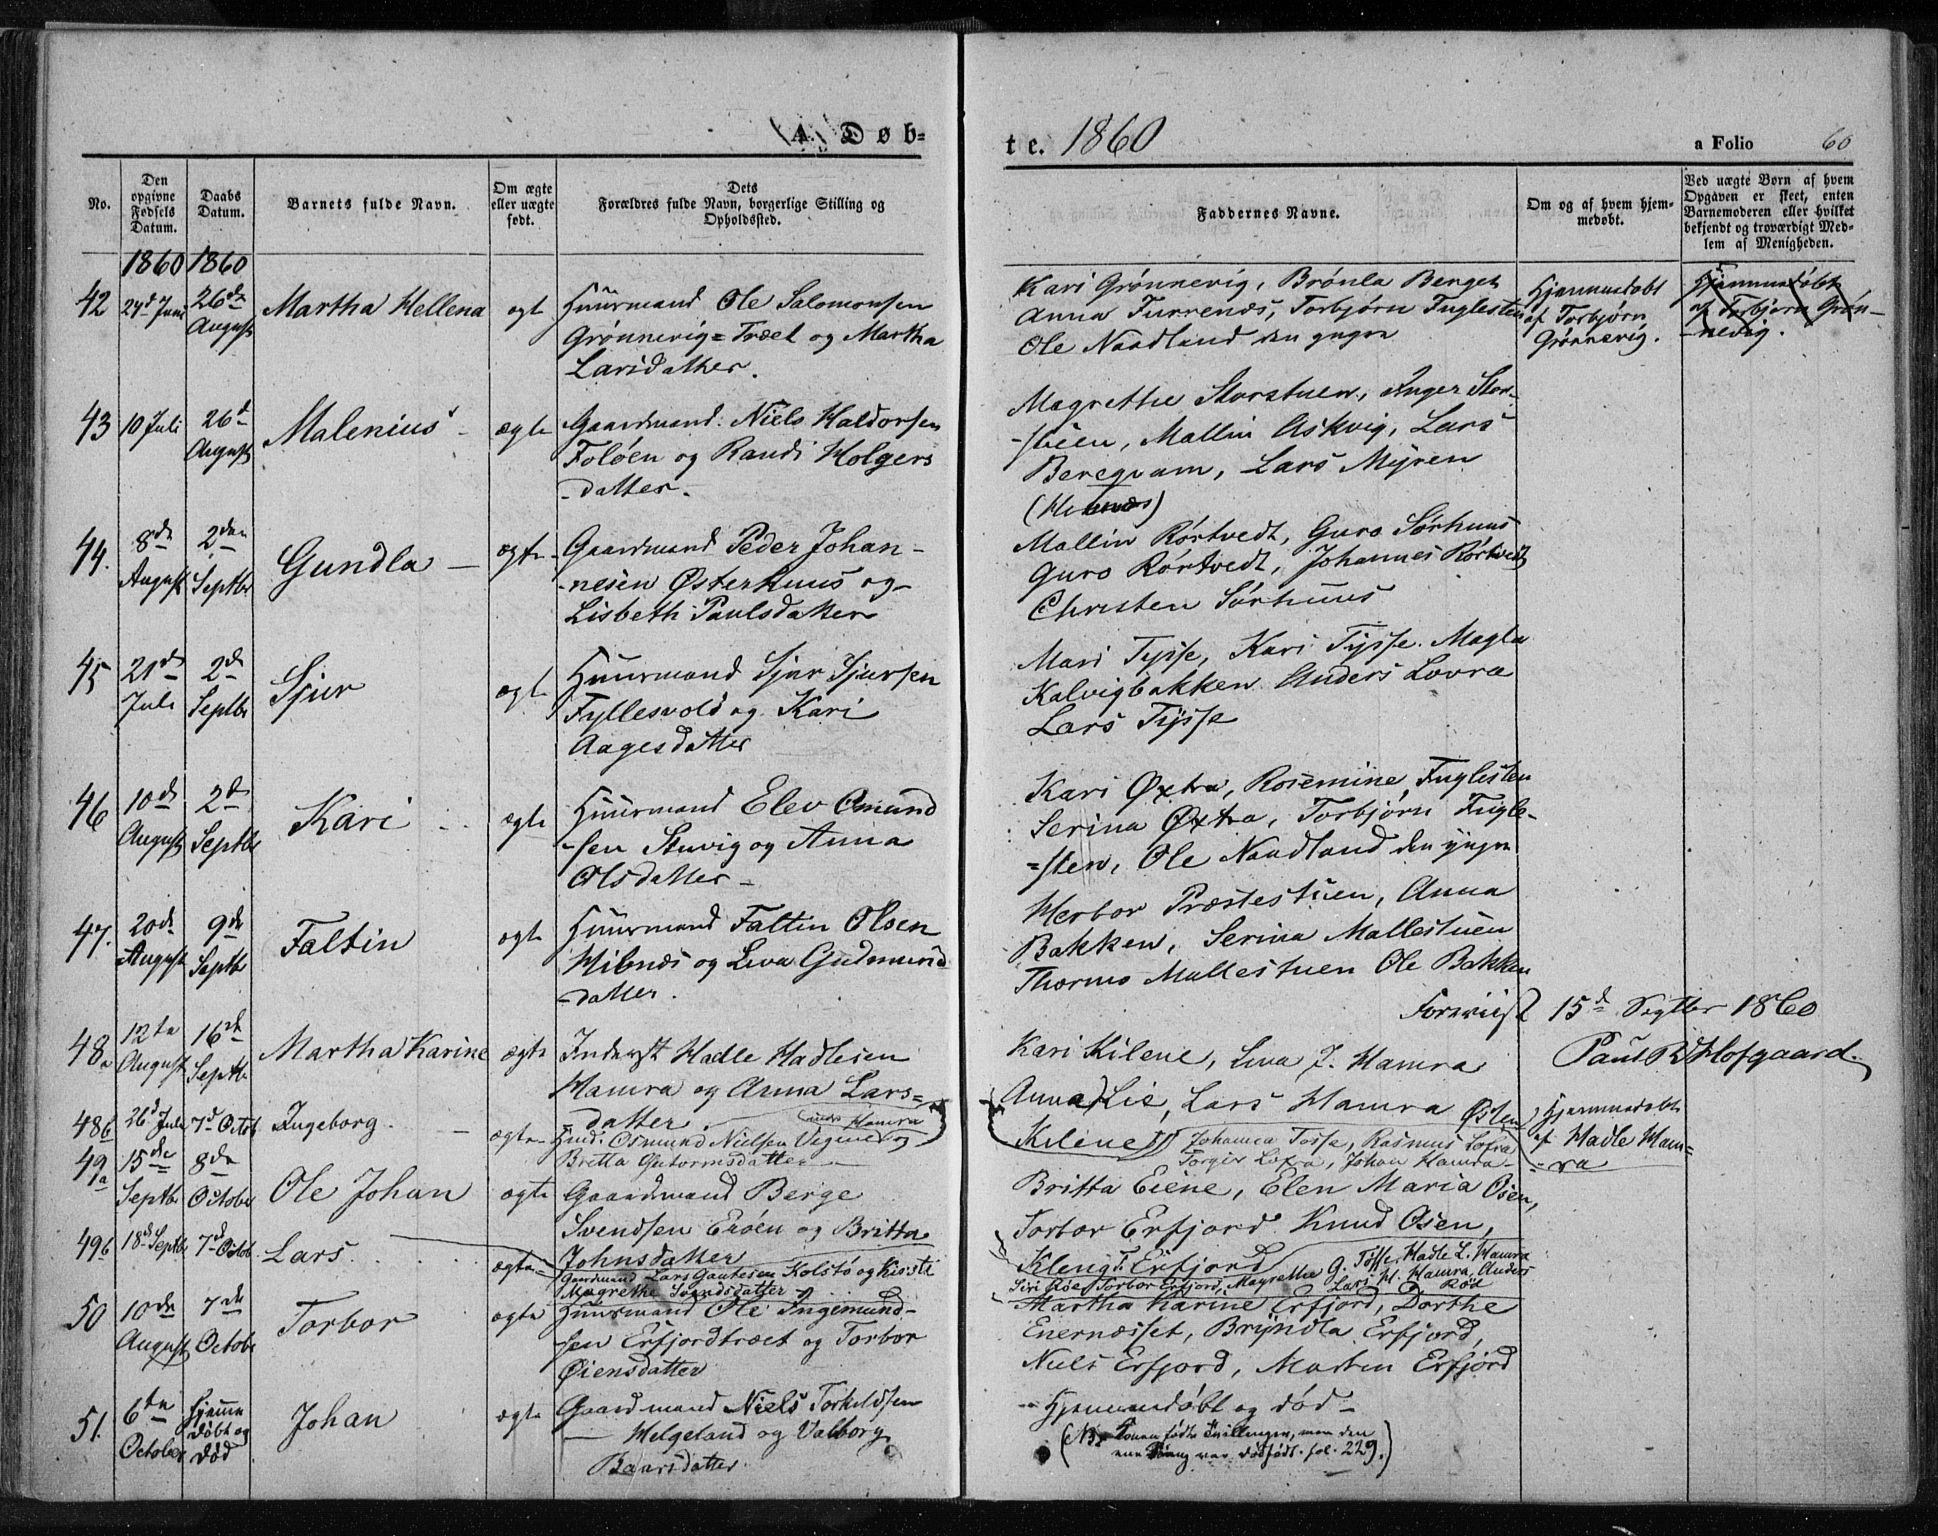 A. Døb-
te. 1860
a Folio 60
No.
Den opgivne Fødsels Datum.
Daabs Datum.
Barnets fulde Navn.
Om ægte eller uægte født.
Dets Forældres fulde Navn, borgerlige Stilling og Opholdssted.
Faddernes Navne.
Om og af hvem hjemmedøbt.
Ved uægte Børn af hvem Opgaven er skeet, enten Barnemoderen eller hvilket bekjendt og troværdigt Medlem af Menigheden.
1860 1860
42 24d Juni 26de August Martha Hellena ægt Huusmand Ole Salomonsen
Grønnevig=Træet og Martha
Larsdatter.
Kari Grønnevig, Brønla Berget
Anna Furrenes, Torbjørn Fuglesten
Ole Naadland den yngre
Hjemmedøbt
af Torbjørn
Grønnevig.
Hjemmedøbt
af Torbjørn Grøn-
-nevig.
43 10 Juli 26d August Malenius - ægte Gaardmand Niels Haldorsen
Foløen og Randi Holgers
-datter.
Magrethe Storstuen, Inger Stor-
-stuen, Mallin Askvig, Lars
Bergquam, Lars Myren
(Hebnes)
44. 8de August 2den Septbr Gundla - ægte- Gaardmand Peder Johan-
-nesen Østerhuus og
Lisbeth Paulsdatter
Mallin Rørtvedt, Guro Sørhuus
Guro Rørtvedt, Johannes Rørtvedt
Christen Sørhuus
45 21de Juli 2de Septbr Sjur ægte Huusmand Sjur Sjursen
Fyllesvold og Kari
Aagesdatter
Mari Tysse, Kari Tysse. Magla
Kalvigbakken Anders Lovra
Lars Tysse
46 10de August 2de Septbr Kari - - ægte Huusmand Elev Omund
-sen Stuvig og Anna
Olsdatter -
Kari Øxtra, Rosemine Fuglesten
Serina Øxtra, Torbjørn Fugle-
=sten, Ole Naadland den yngre
47. 20de August 9de Septbr Faltin ægte Huusmand Faltin Olsen
Hibnes og Liva Gudmund
-datter.
Herbor Præstestuen, Anna
Bakken, Serina Mallestuen
Thormo Mallestuen Ole Bakken
Foreviist 15d Septbr 1860
Paul R Hofgaard.
48a 12te August 16de Septbr Martha Karine ægte Inderst Hadle Hadlesen
Hamra og Anna Lars=
datter.
Kari Kilene, Liva J. Hamra
Anna Lie, Lars Hamra Østen
Kilene
Hjemmedøbt
af Hadle Ham=
-ra
48b 26d Juli 7d Octob Ingeborg. - ægte Huusm: Osmund Nielsen Vegine og
Britta Gutormsdatter -
Johanna Tosse, Rasmus Lofra
Torgier Lofra, Johan Hamra-
49a 15de Septbr 8de Octobr Ole Johan ægte Gaardmand Berge
Svendsen Erøen og Britta
Johnsdatter
Britta Eiene, Elen Maria Osen,
Torbor Erfjord Knud Osen,
Kleng T. Erfjord
49b 18d Septbr 7d Octob Lars ægte Gaardmand Lars Gautesen Kolstø og Kirsti
Magrethe Svendsdatter
Magrethe G. Tysse, Hadle L. Hamra
Siri Røe, Torbor Erfjord, Lars H. Hamra, Anders
Røe
50 10de August 7de Octobr Torbor ægte Huusmand Ole Ingemund-
-sen Erfjordtræet og Torbor
Øiensdatter
Martha Karine Erfjord, Dorthe
Enernæsset, Bryndla Erfjord,
Niels Erfjord, Morten Erfjord
51. 6te October Hjemme døbt og død Johan ægte Gaardmand Niels Torkildsen
- Helgeland og Valborg
Baarsdatter.
- Hjemmedøbt og død -
(NB. Konen fødte Tvillinger, men den
ene Dreng var dødfødt. fol. 229.)